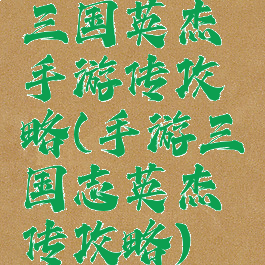 三国英杰
手游传攻
略(手游三
国志英杰
传攻略)